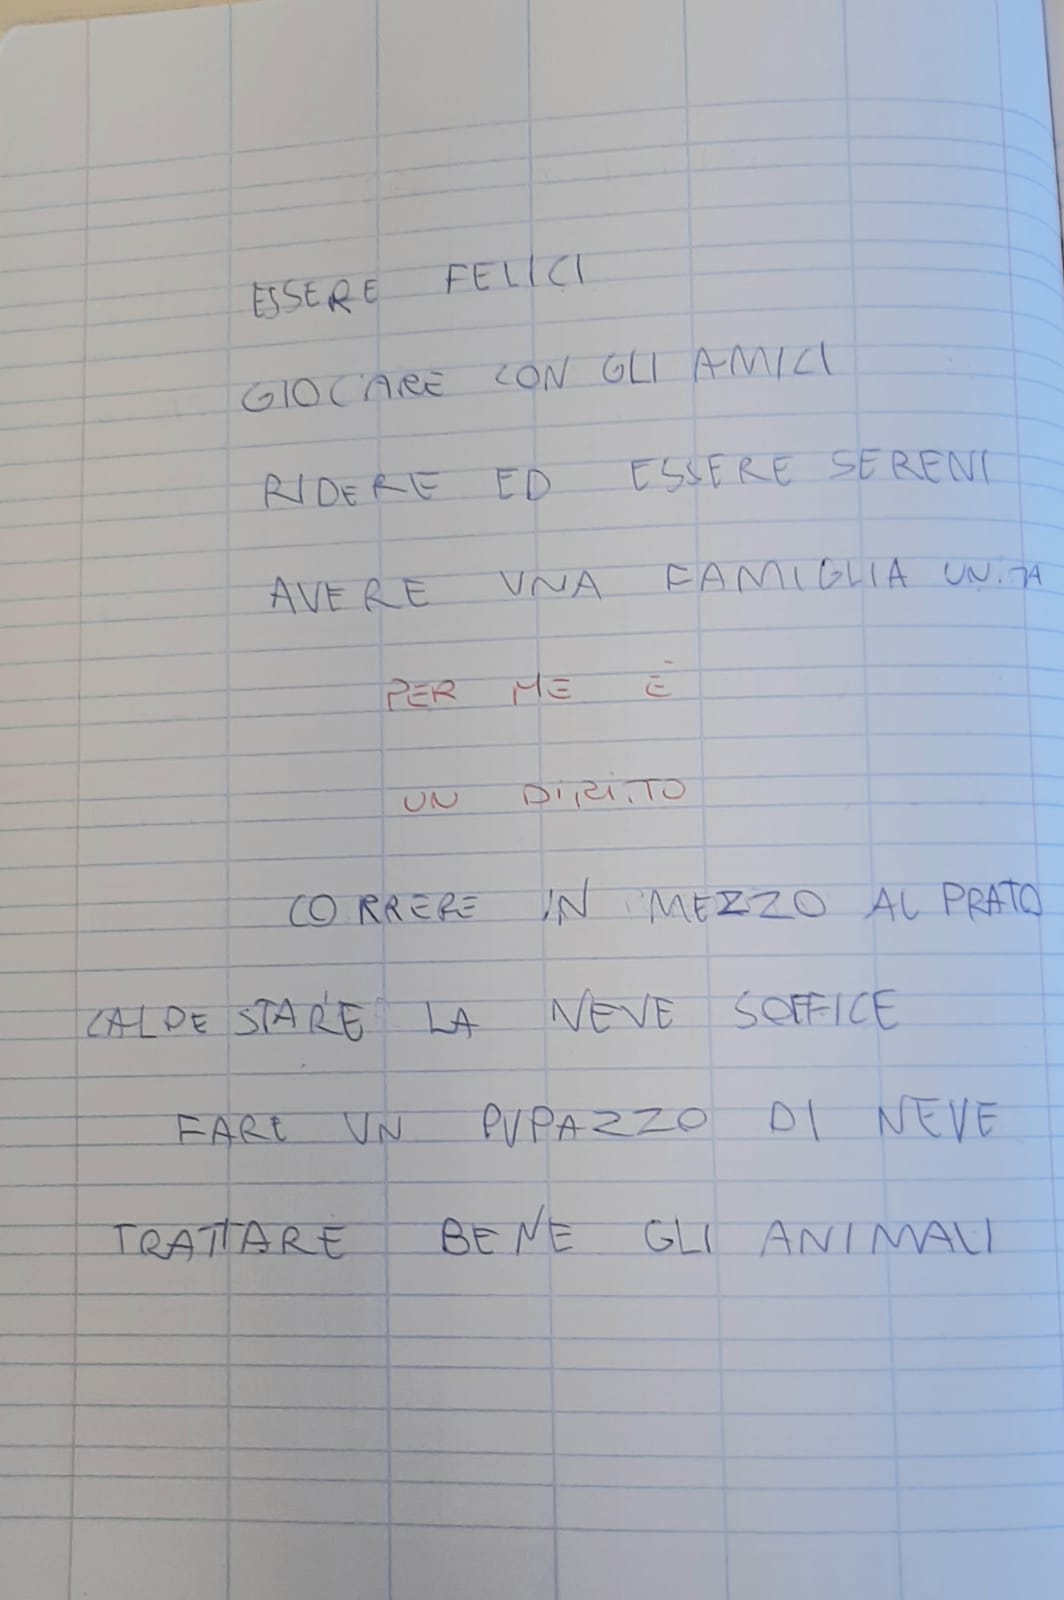 ESSERE FELICI
GIOCARE CON GLI AMICI
RIDERE ED ESSERE SERENI
AVERE UNA FAMIGLIA UNITA
PER ME È
UN DIRITO
CORRERE IN MEZZO AL PRATO
CALDESTARE LA NEVE SOFFICE
FARE UN PUPAZZO DI NEVE
TRATTARE BENE GLI ANIMALI